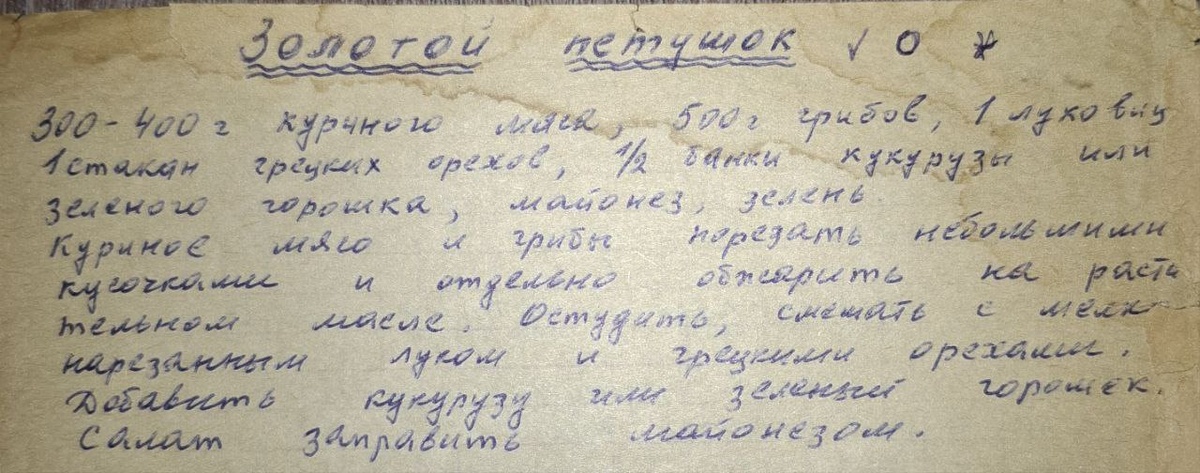 Золотой петушок √ О *
300-400г куриного мяса, 500г грибов, 1 луковиц
1 стакан грецких орехов, 1/2 банки кукурузы или
зеленого горошка, майонез, зелень.
Куриное мясо и грибы порезать небольшими
кусочками и отдельно обжарить на расти
тельном масле. Остудить, смешать с мелко
нарезанным луком и грецкими орехами.
Добавить кукурузу или зеленый горошек.
Салат заправить майонезом.